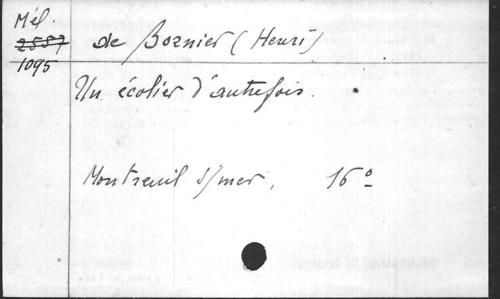 Mél.
2557
1095
de Bornier (Henri)
Un écolier d'autrefois.
Montreuil s/mer, 16°